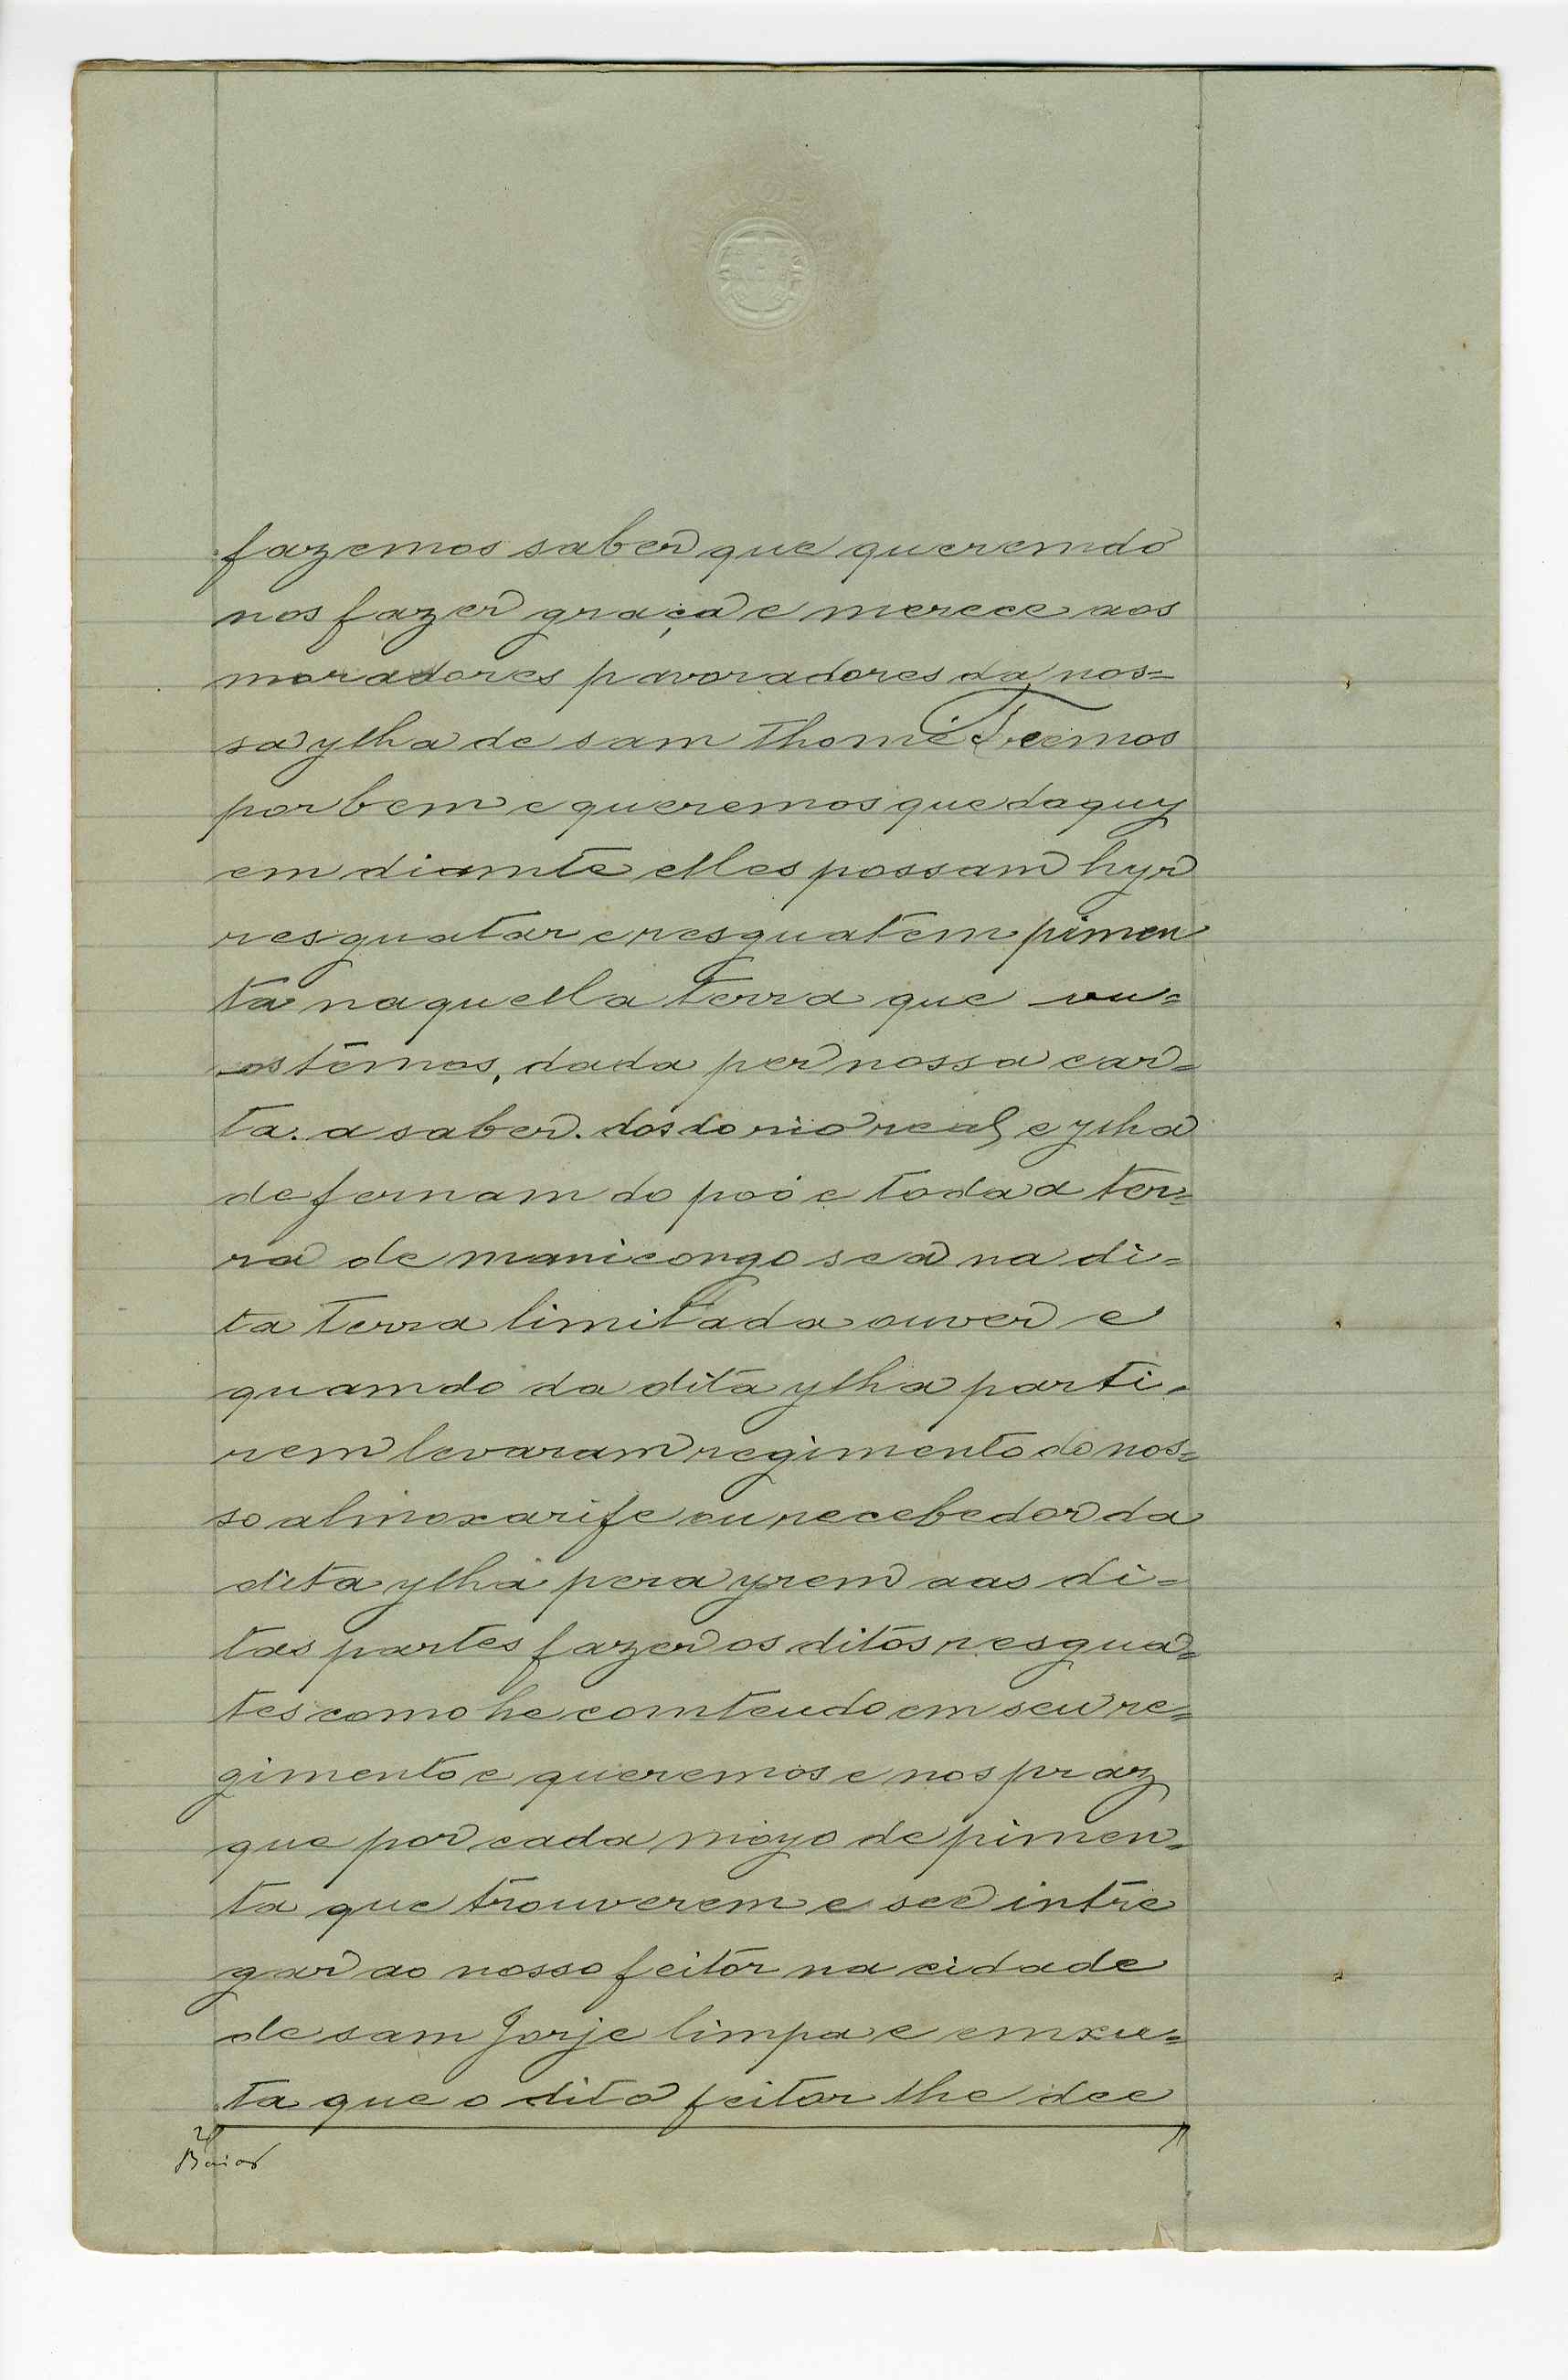 fazemos saber que queremdo
nos fazer graça e merece aos
moradores pavoradores da nos=
sa ylha de sam thomé Teemos
por bem e queremos que daquy
em diamte elles possam hyr
resguatar e resguatem pimen
ta naquella terra que
temos, dada per nossa car=
ta. a saber. dos do rio real e ylha
de fernam do poó e toda a ter=
ra de manicongo se a na di=
ta terra limitada ouver e
quamdo da dita ylha parti=
rem levaram regimento do nos=
so almoxarife ou recebedor da
dita ylha pera yrem aas di=
tas partes fazer os ditos resgua=
tes como he comteudo em seu re=
gimento e queremos e nos praz
que por cada moyo de pimen=
ta que trouverem e see intre
gar ao nosso feitor na cidade
de sam Jorje limpa e emxu=
ta que o dito feitor lhe dee